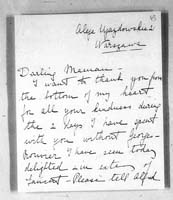 Aleje Ujazdowskie 2
Warszawa
Darling Maman –
I want to thank you from
the bottom of my heart
for all your kindness during
the 2 days I have spent
with you without
I have seen today
delighted
Please tell